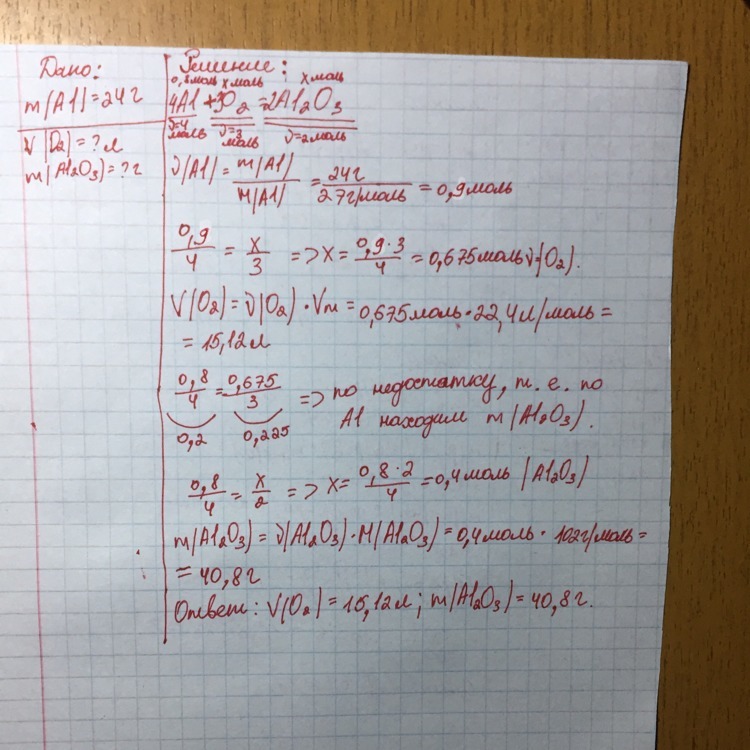 Дано:
m(Al)=24г
V(O₂)=?л
m(Al₂O₃)=?г
Решение:
0,8моль x моль x моль
4Al+3O₂=2Al₂O₃
ν=4 моль ν=3 моль ν=2моль
ν(Al)=m(Al)/M(Al)=24г/27г/моль=0,9моль
0,9/4=x/3 => x=0,9·3/4=0,675моль ν(O₂).
V(O₂)=ν(O₂)·Vm=0,675моль·22,4л/моль=
=15,12л
0,8/4=0,675/3 => по недостатку, т.е. по
0,2 0,225 Al находим m(Al₂O₃).
0,8/4=x/2 => x=0,8·2/4=0,4моль (Al₂O₃)
m(Al₂O₃)=ν(Al₂O₃)·M(Al₂O₃)=0,4моль·102г/моль=
=40,8г
Ответ: V(O₂)=15,12л; m(Al₂O₃)=40,8г.